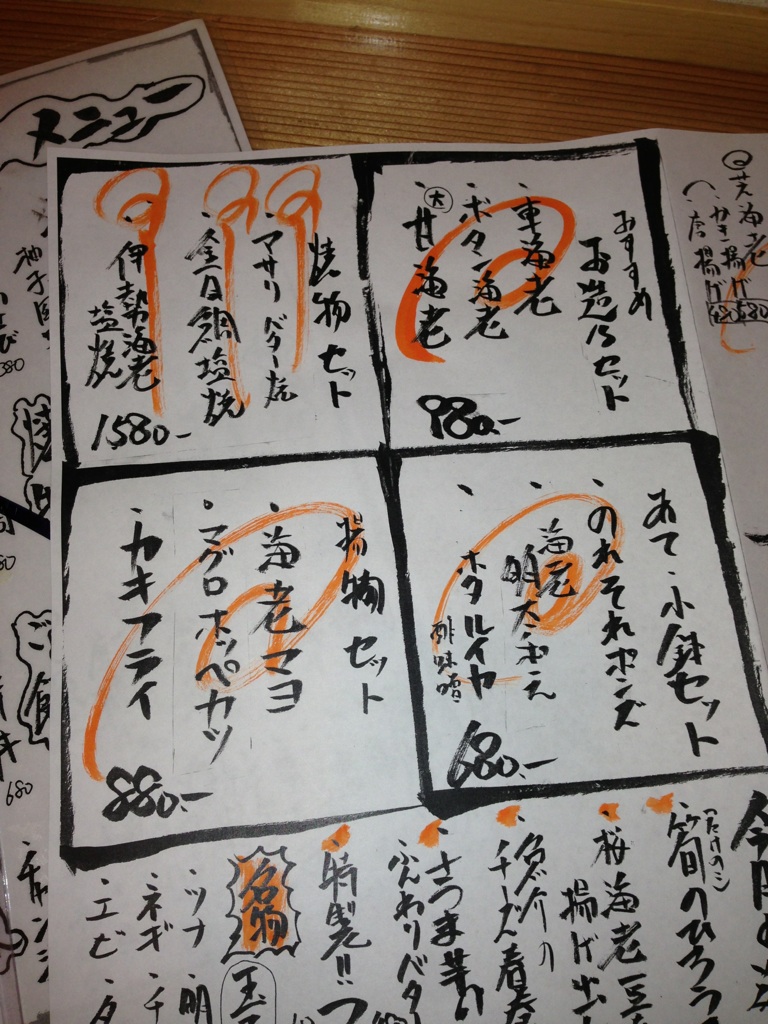 メニュー
芝海老
かき揚げ
唐揚げ
580
おすすめ
お造りセット
車海老
ボタン海老
大 甘海老
980.-
焼物セット
アサリバター焼
金目鯛塩焼
伊勢海老
塩焼
1580.-
あて・小鉢セット
のれそれポンズ
海老
明太・ポテ
ホタルイカ
酢味噌
680.-
揚物セット
海老マヨ
マグロホッペカツ
カキフライ
880.-
(たけのこ)
筍のひろう
桜海老豆
揚げ出し
魚介の
チーズ春
さつま芋の
ふんわりバタ
特製!!
名物
ツナ
明
ネギ
チ
エビ
タ
380
680